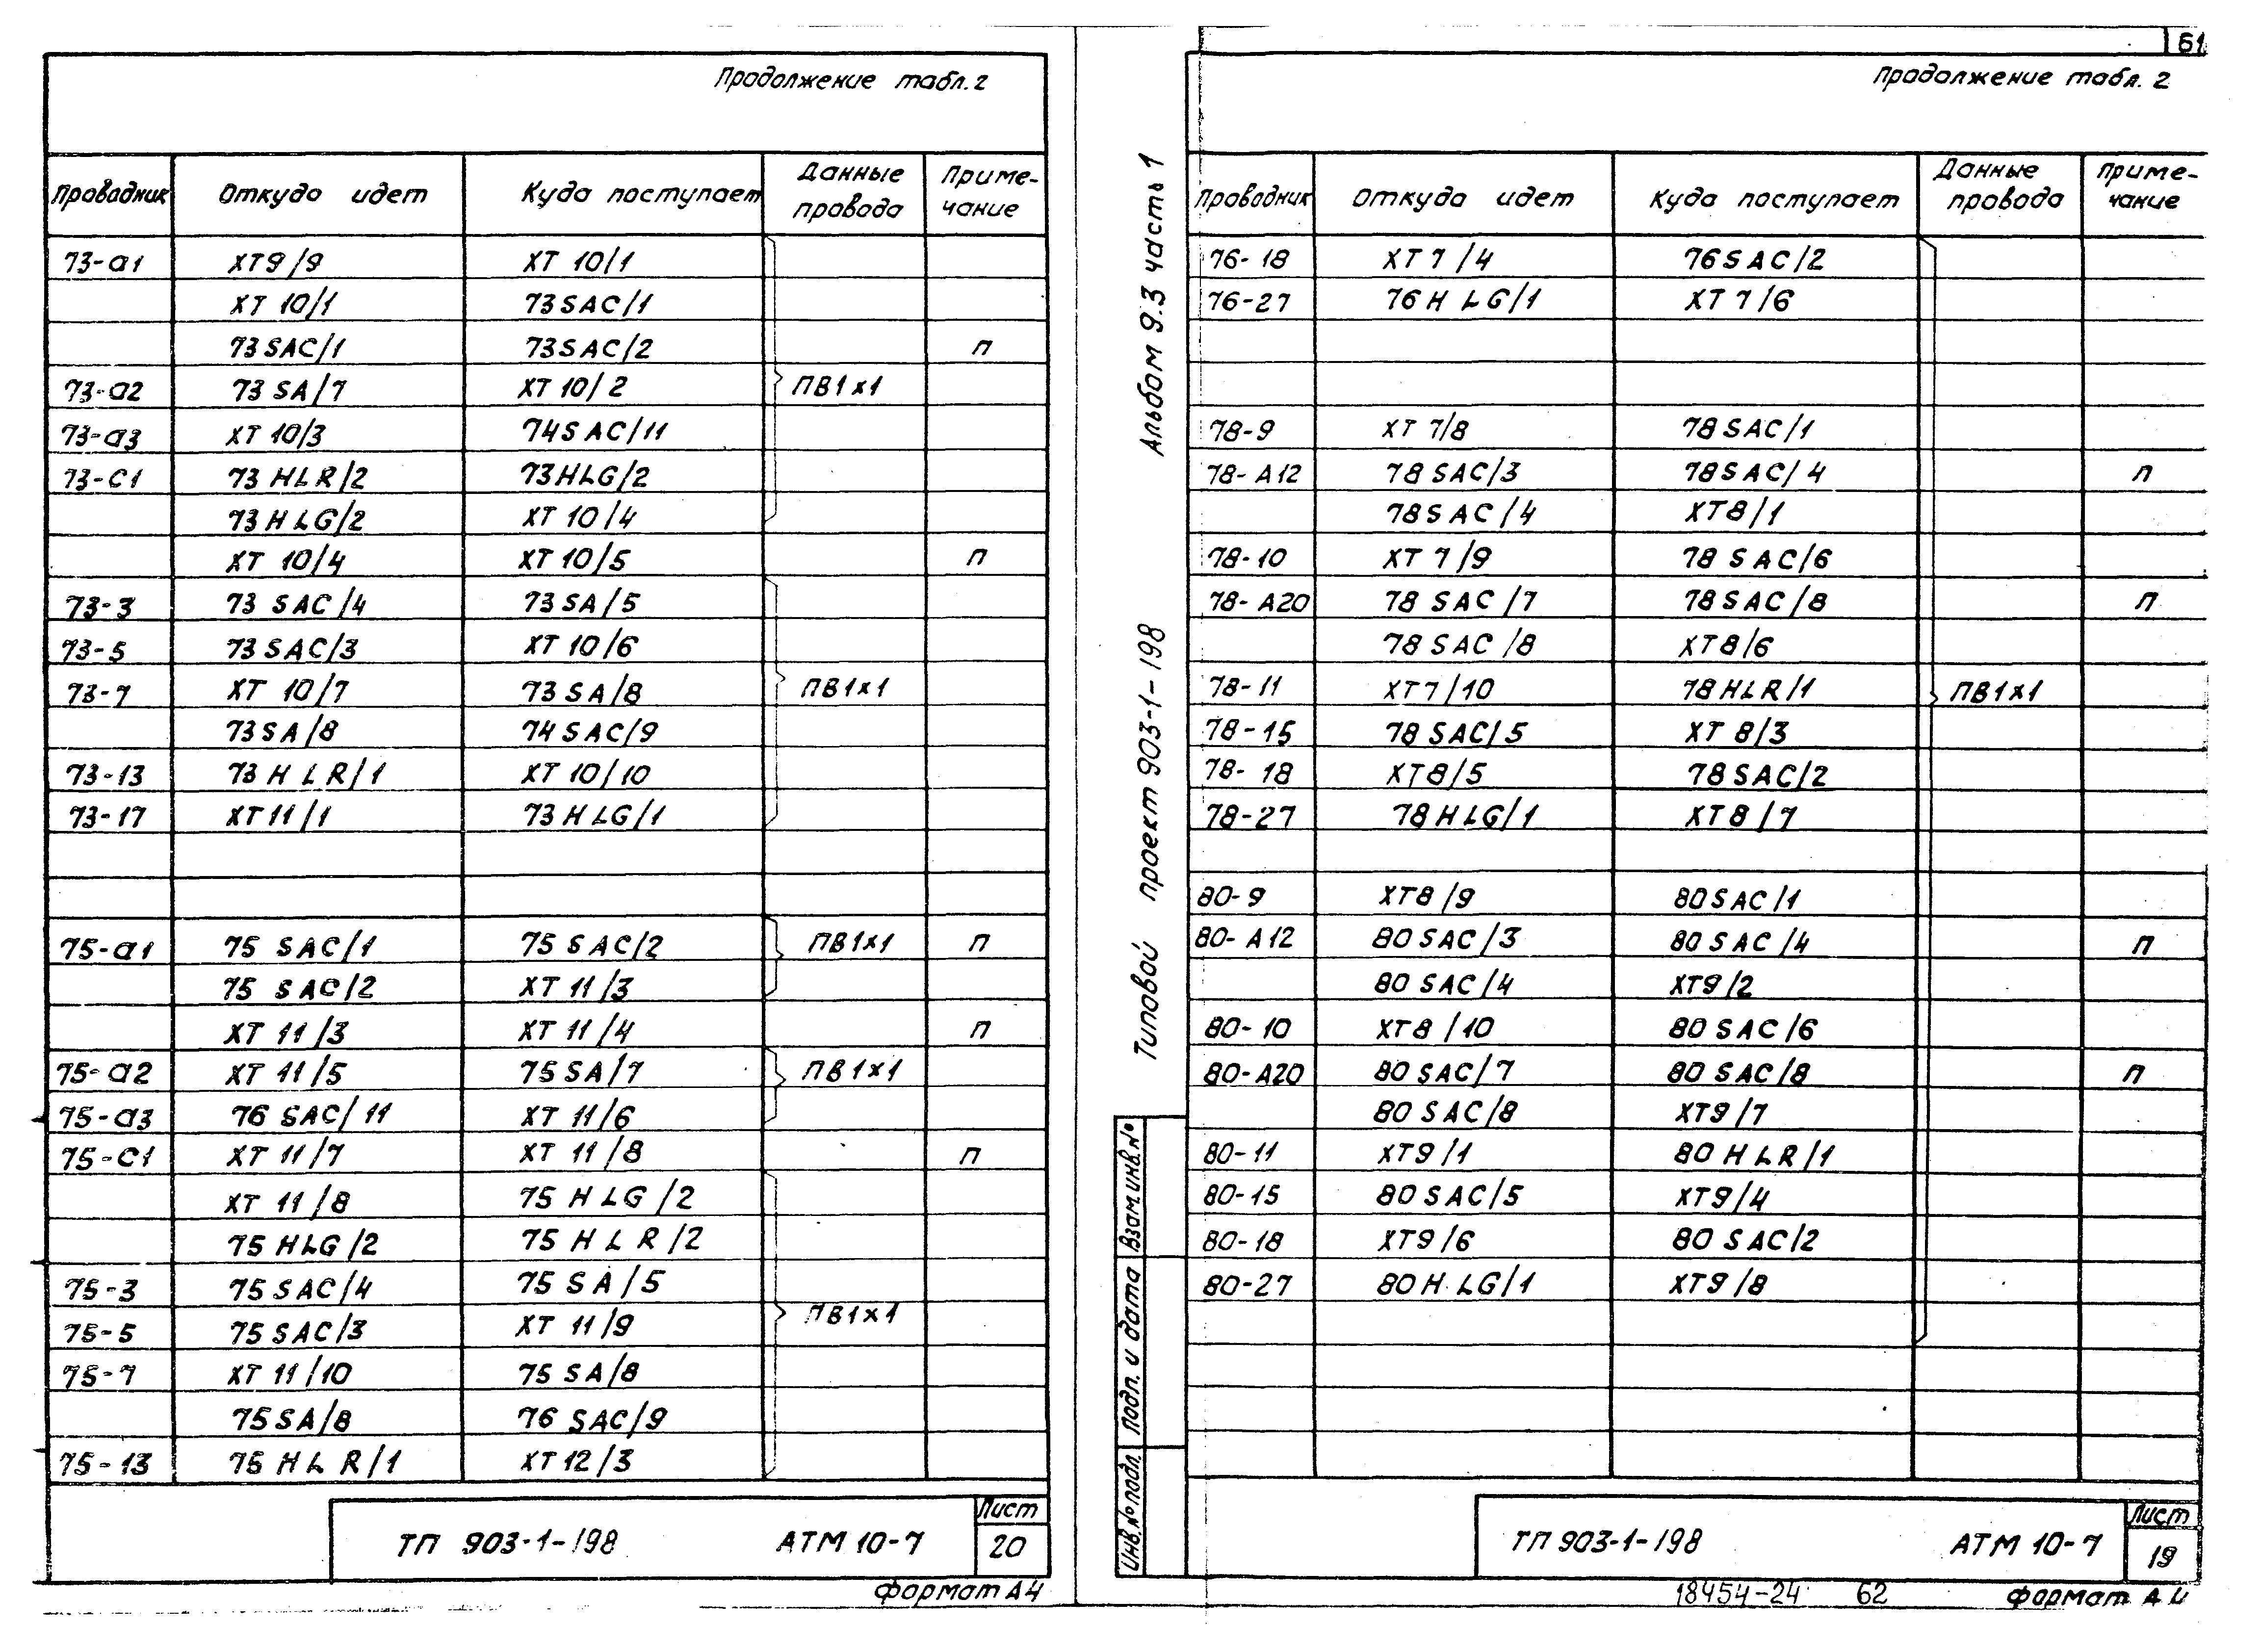 Продолжение табл. 2
Проводник Откуда идет Куда поступает Данные провода Приме-чание
73-а1 ХТ9/9 ХТ 10/1
ХТ 10/1 73SAC/1
73SAC/1 73SAC/2 п
73-а2 73 SA/7 ХТ 10/2 ПВ1х1
73-а3 ХТ 10/3 74SAC/11
73-С1 73 HLR/2 73HLG/2
73HLG/2 ХТ 10/4
ХТ 10/4 ХТ 10/5 п
73-3 73 SAC/4 73SA/5
73-5 73 SAC/3 ХТ 10/6
73-7 ХТ 10/7 73 SA/8 ПВ1х1
73SA/8 74 SAC/9
73-13 73 HLR/1 ХТ 10/10
73-17 ХТ11/1 73HLG/1
75-а1 75 SAC/1 75 SAC/2 ПВ1х1 п
75 SAC/2 ХТ 11/3
ХТ 11/3 ХТ 11/4 п
75-а2 ХТ 11/5 75SA/7 ПВ1х1
75-а3 76 SAC/11 ХТ 11/6
75-С1 ХТ 11/7 ХТ 11/8 п
ХТ 11/8 75 HLG/2
75 HLG/2 75 HLR/2
75-3 75 SAC/4 75 SA/5
75-5 75 SAC/3 ХТ 11/9 ПВ1х1
75-7 ХТ 11/10 75 SA/8
75SA/8 76 SAC/9
75-13 75 HLR/1 ХТ 12/3
ТП 903-1-198 АТМ 10-7 Лист 20
формат А4
61
Продолжение табл. 2
Альбом 9.3 часть 1
Типовой проект 903-1-198
Взам.инв.№
Подп. и дата
Инв.№ подл.
Проводник Откуда идет Куда поступает Данные провода Приме-чание
76-18 ХТ7/4 76SAC/2
76-27 76HLG/1 ХТ7/6
78-9 ХТ 7/8 78SAC/1
78-А12 78SAC/3 78SAC/4 п
78SAC/4 ХТ8/1
78-10 ХТ 7/9 78 SAC/6
78-А20 78 SAC/7 78SAC/8 п
78SAC/8 ХТ8/6
78-11 ХТ7/10 78HLR/1 ПВ1х1
78-15 78 SAC/5 ХТ 8/3
78-18 ХТ8/5 78SAC/2
78-27 78HLG/1 ХТ8/7
80-9 ХТ8/9 80SAC/1
80-А12 80SAC/3 80SAC/4 п
80 SAC/4 ХТ9/2
80-10 ХТ8/10 80 SAC/6
80-А20 80 SAC/7 80 SAC/8 п
80 SAC/8 ХТ9/7
80-11 ХТ9/1 80 HLR/1
80-15 80SAC/5 ХТ9/4
80-18 ХТ9/6 80 SAC/2
80-27 80HLG/1 ХТ9/8
ТП 903-1-198 АТМ 10-7 Лист 19
18454-24 62 формат А4